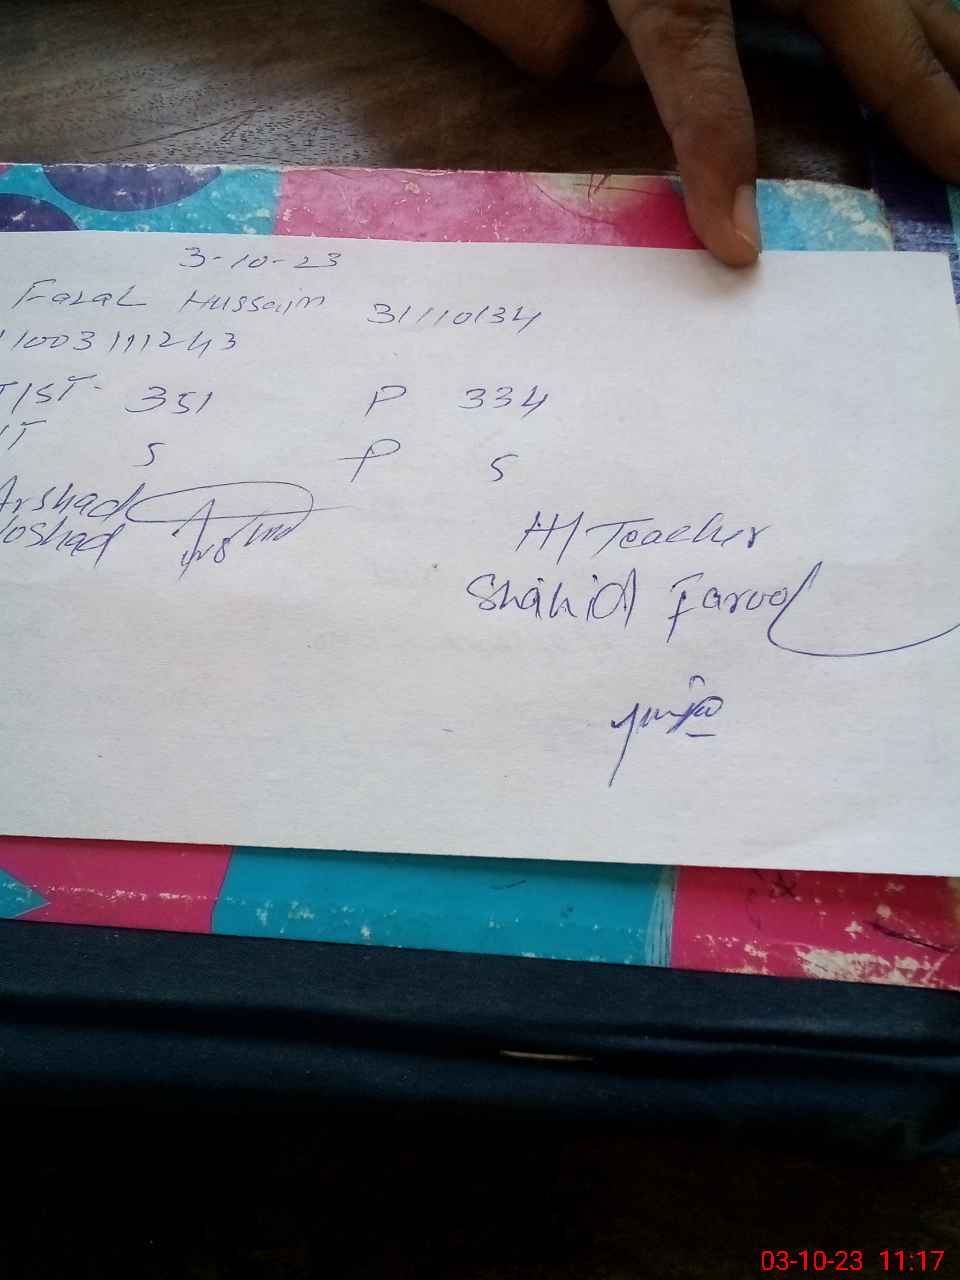 3-10-23
Fazal Hussain 31110134
11003111243
T/ST- 351 P 334
IT 5 P 5
Arshad
H/Teacher
Shahid Farooq
03-10-23 11:17